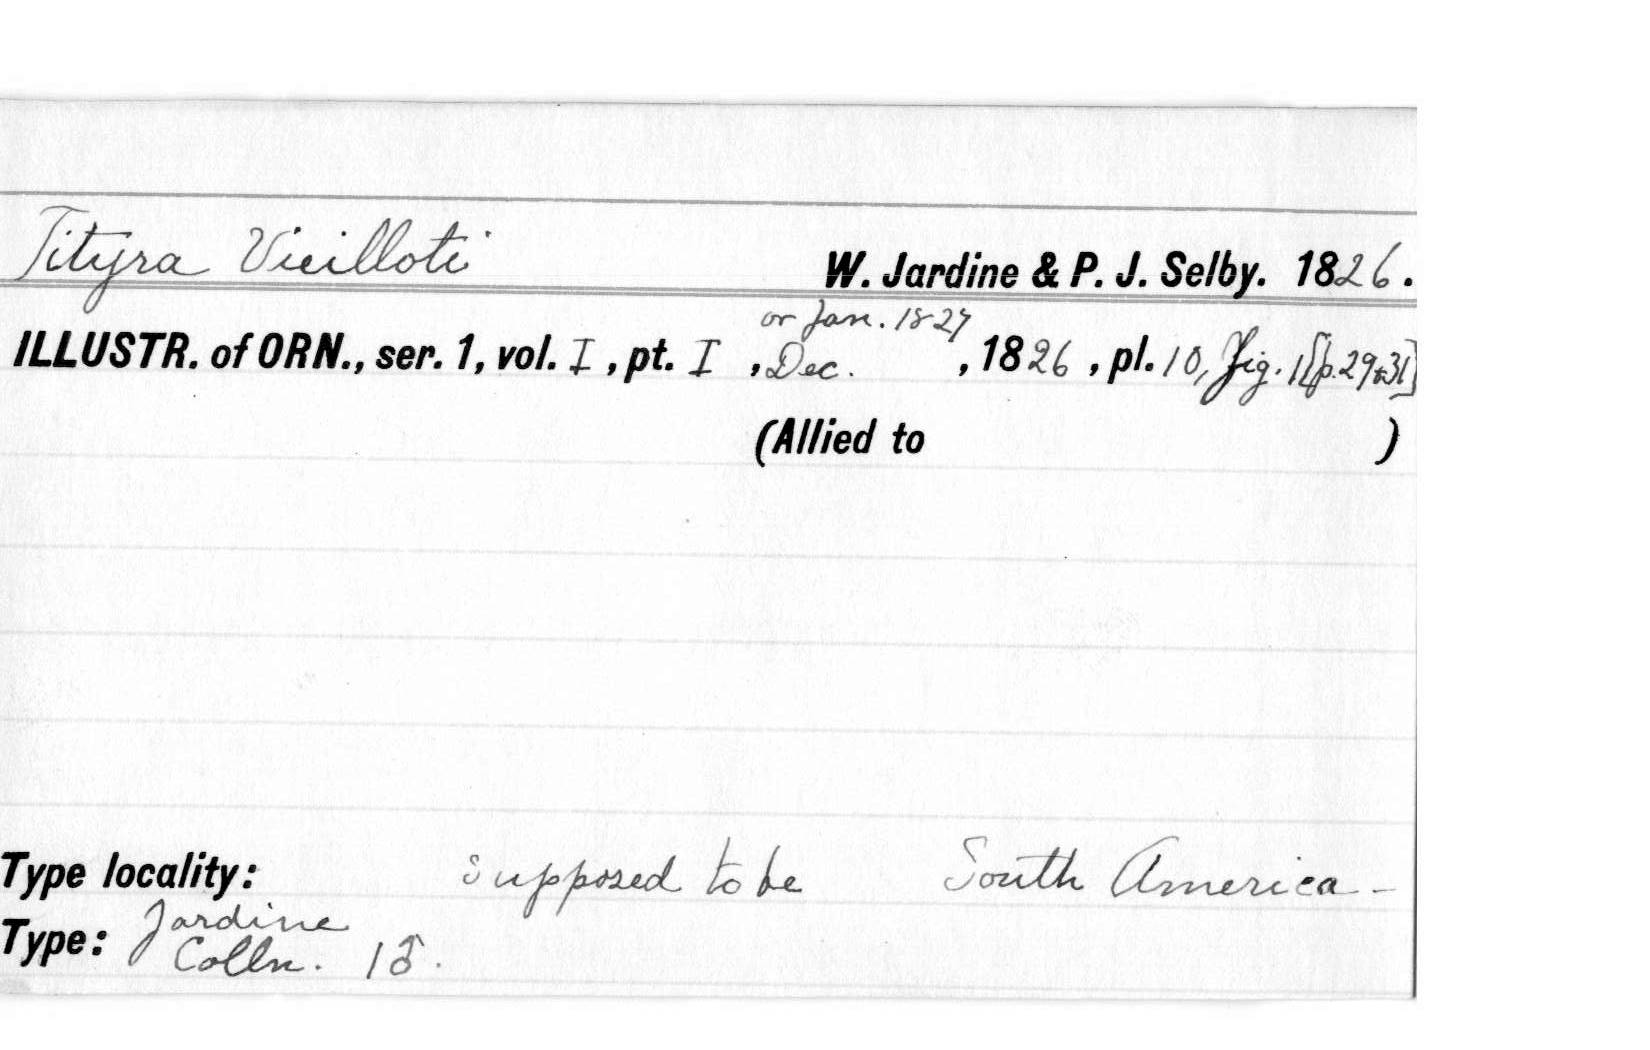 Tityra Vieilloti
W. Jardine & P. J. Selby. 1826.
or Jan. 1827
ILLUSTR. of ORN., ser. 1, vol. I, pt. I, Dec. , 1826, pl. 10, fig. 1 [p. 29-31]
(Allied to )
Type locality: supposed to be South America -
Type: Jardine
Colln. 1♂.